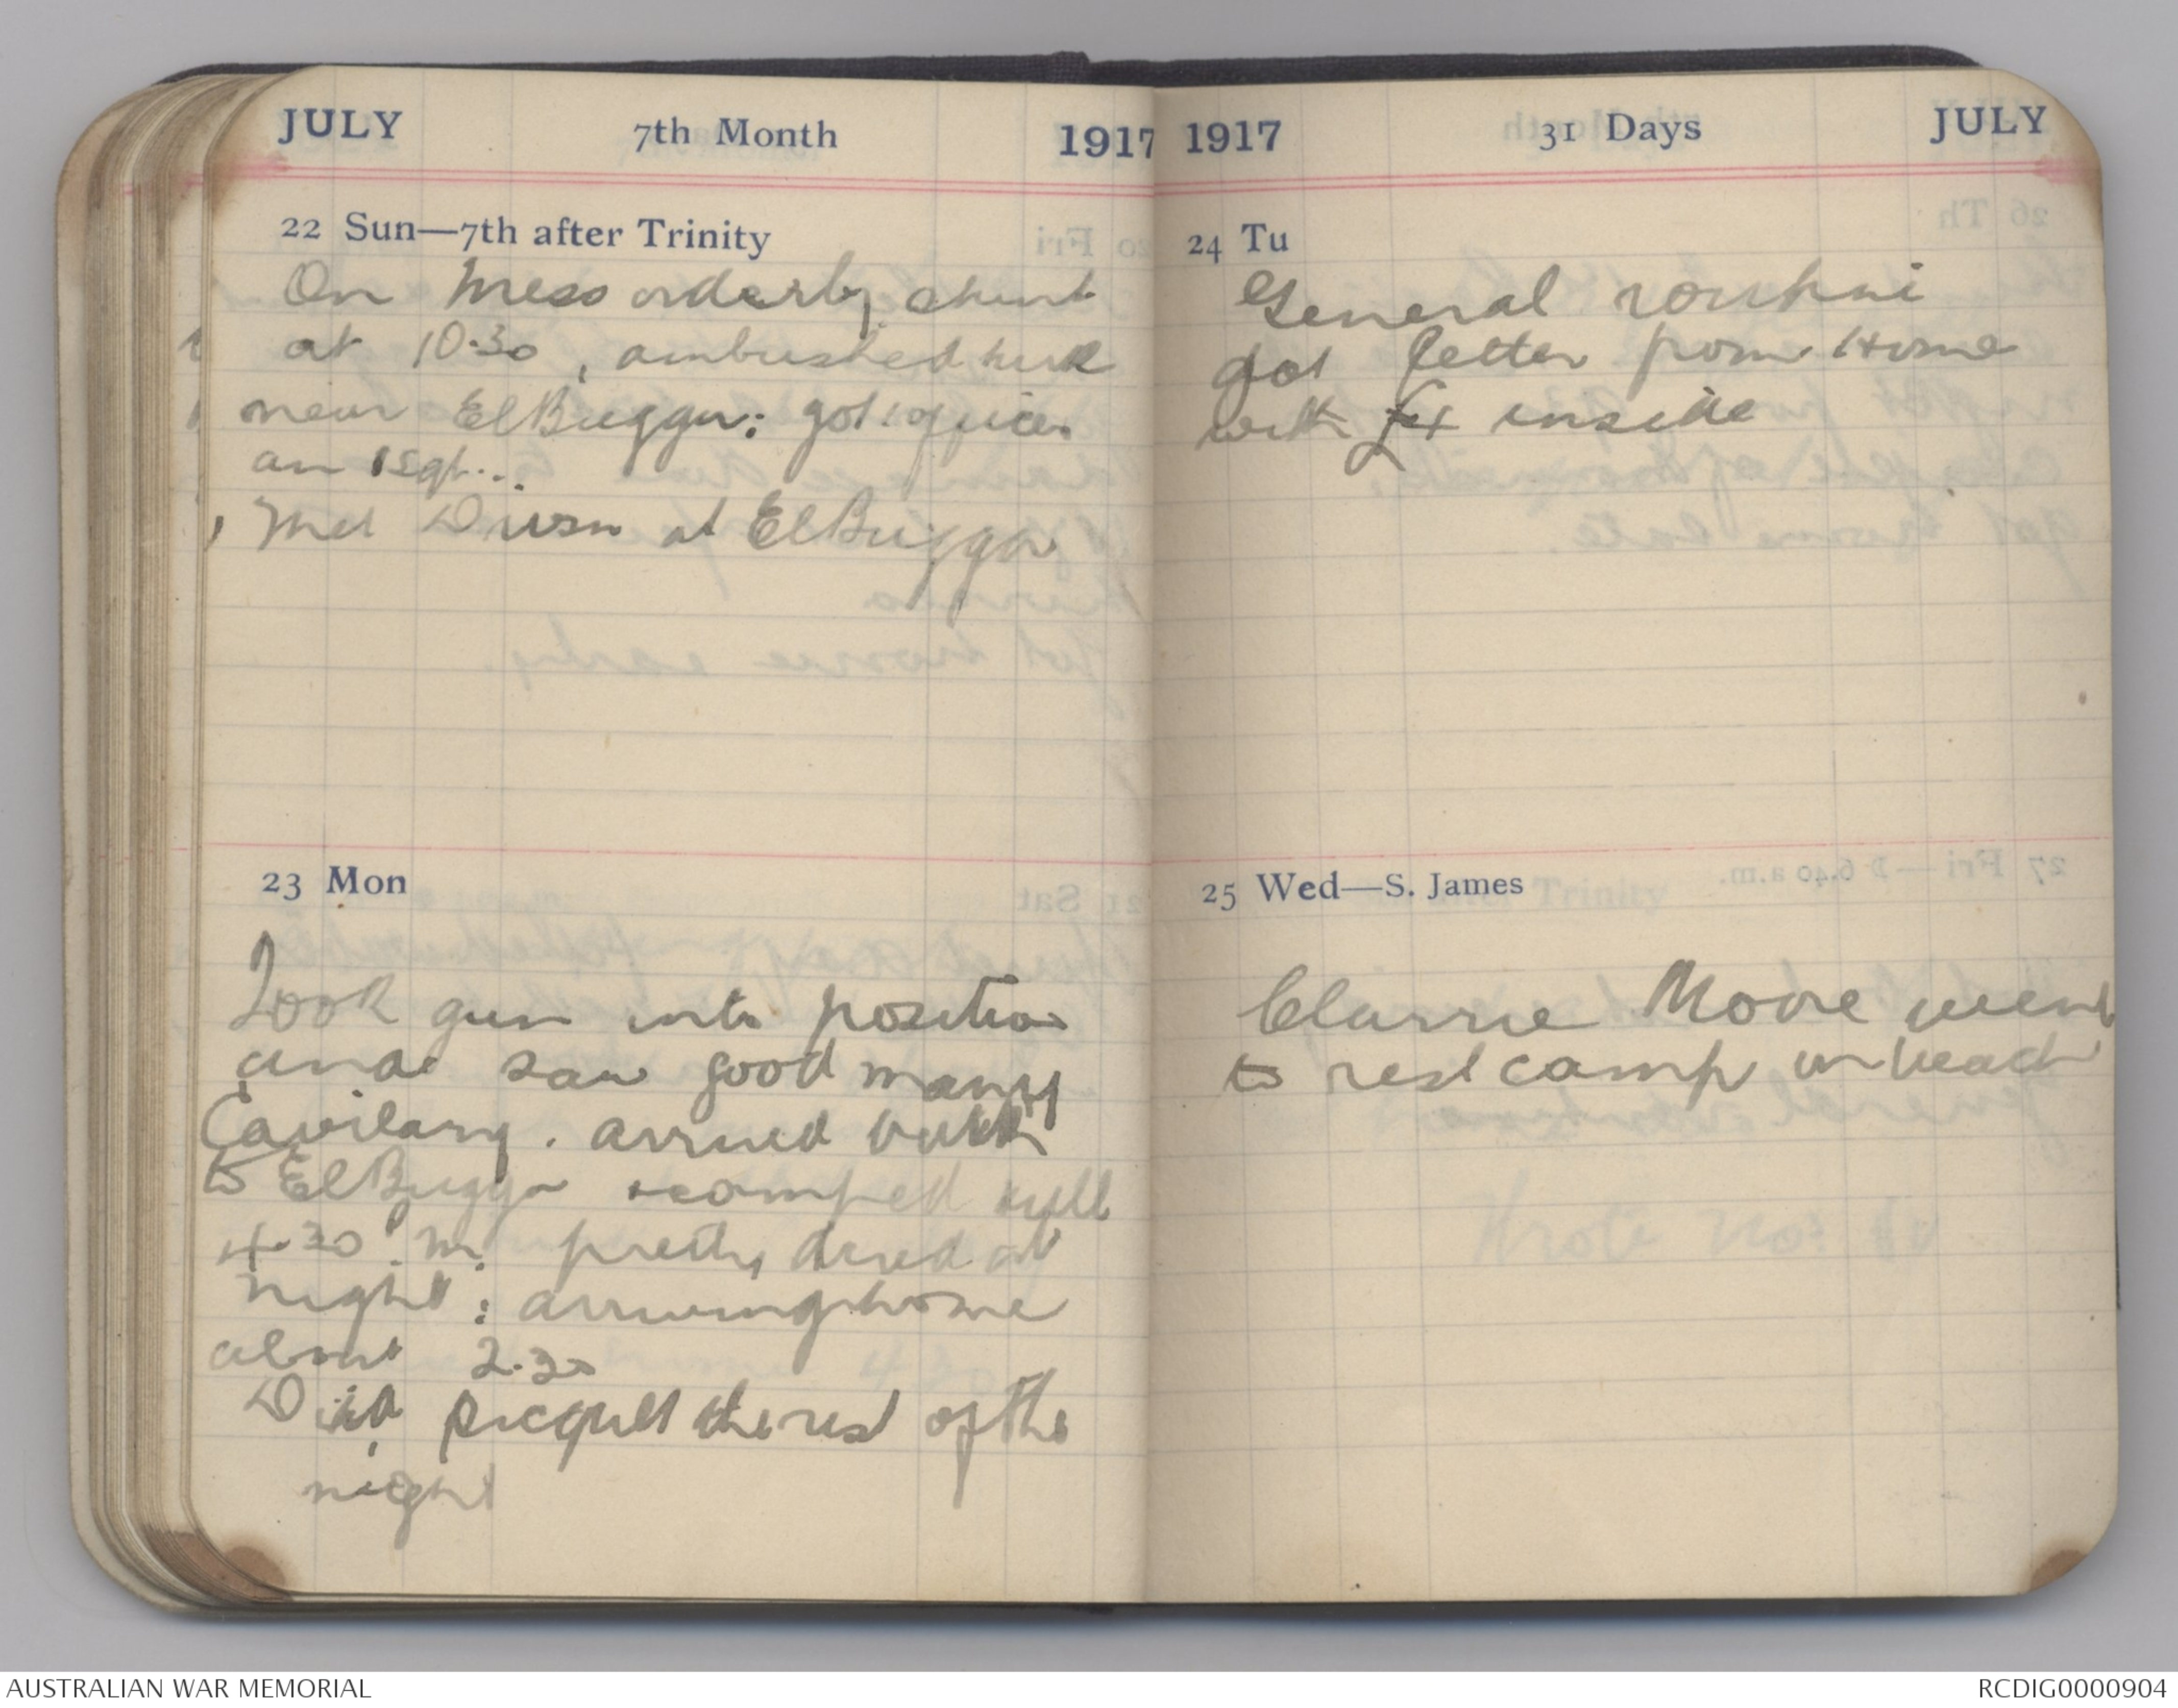 JULY 7th Month 1917
22 Sun—7th after Trinity
On Mess orderly,
at 10.30, ambushed
near ElBuggar: got 1 officer
an 1 Sgt...
Met Divsn at ElBuggar
23 Mon
Took gun into position
and saw good many
Cavilary. arrived back
to ElBuggar & camped till
4.30 . m. pretty tired at
night: arriving home
about 2.30
Did picquet the rest of the
night
1917 31 Days JULY
24 Tu
General
got letter from Home
with inside
25 Wed—S. James
Clarrie Moore went
to rest camp on beach
Wrote No.
AUSTRALIAN WAR MEMORIAL
RCDIG0000904